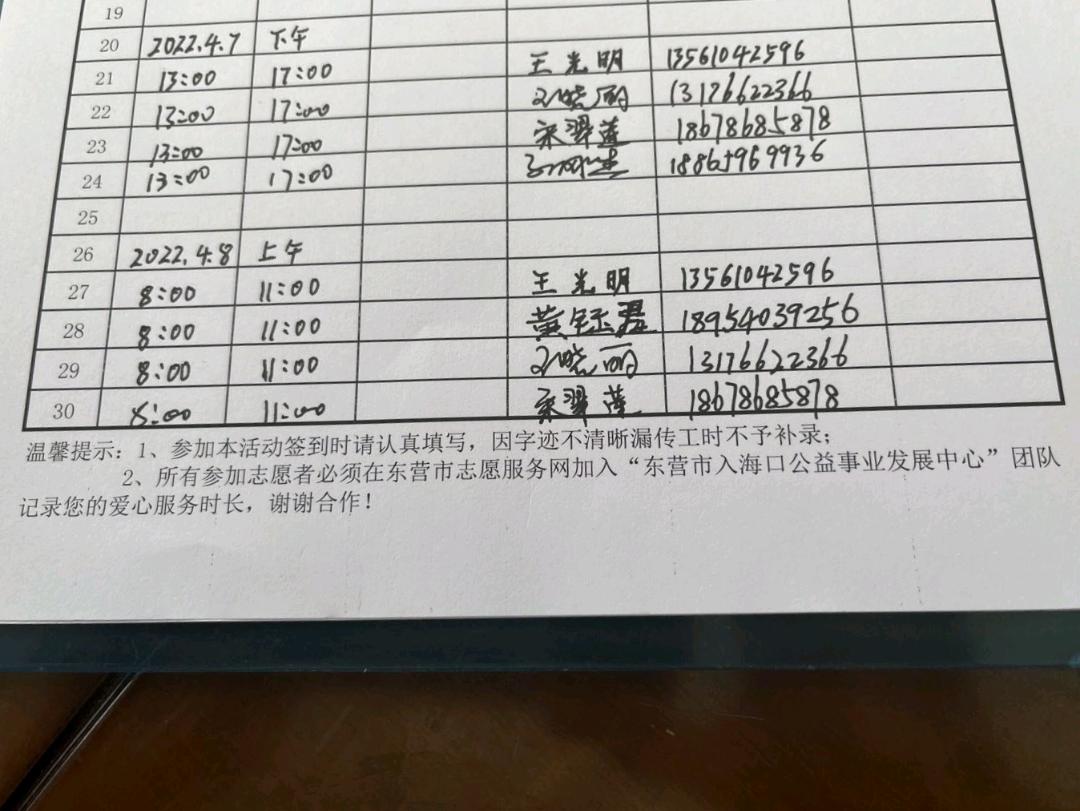 19
20 2022.4.7 下午
21 13:00 17:00 王光明 13561042596
22 13:00 17:00 刘晓丽 13176622366
23 13:00 17:00 宋翠莲 18678685878
24 13:00 17:00 18865969936
25
26 2022.4.8 上午
27 8:00 11:00 王光明 13561042596
28 8:00 11:00 黄钰君 18954039256
29 8:00 11:00 刘晓丽 13176622366
30 8:00 11:00 宋翠莲 18678685878
温馨提示：1、参加本活动签到时请认真填写，因字迹不清晰漏传工时不予补录；
2、所有参加志愿者必须在东营市志愿服务网加入“东营市入海口公益事业发展中心”团队
记录您的爱心服务时长，谢谢合作！